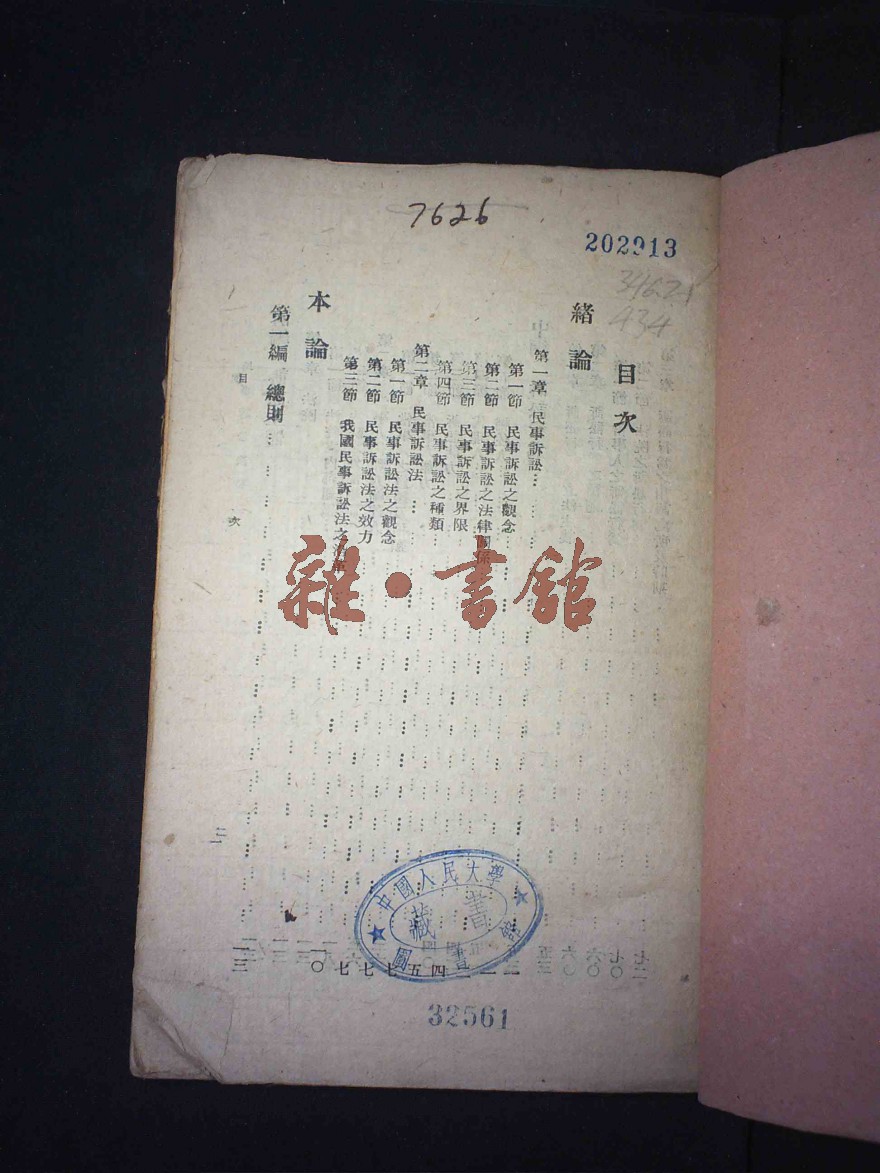 7626
202913
目次
緒論
第一章 民事訴訟
第一節 民事訴訟之觀念
第二節 民事訴訟之法律關係
第三節 民事訴訟之界限
第四節 民事訴訟之種類
第二章 民事訴訟法
第一節 民事訴訟法之觀念
第二節 民事訴訟法之效力
第三節 我國民事訴訟法之沿革
本論
第一編 總則
目次
雜·書館
中國人民大學
圖書館
藏書
32561